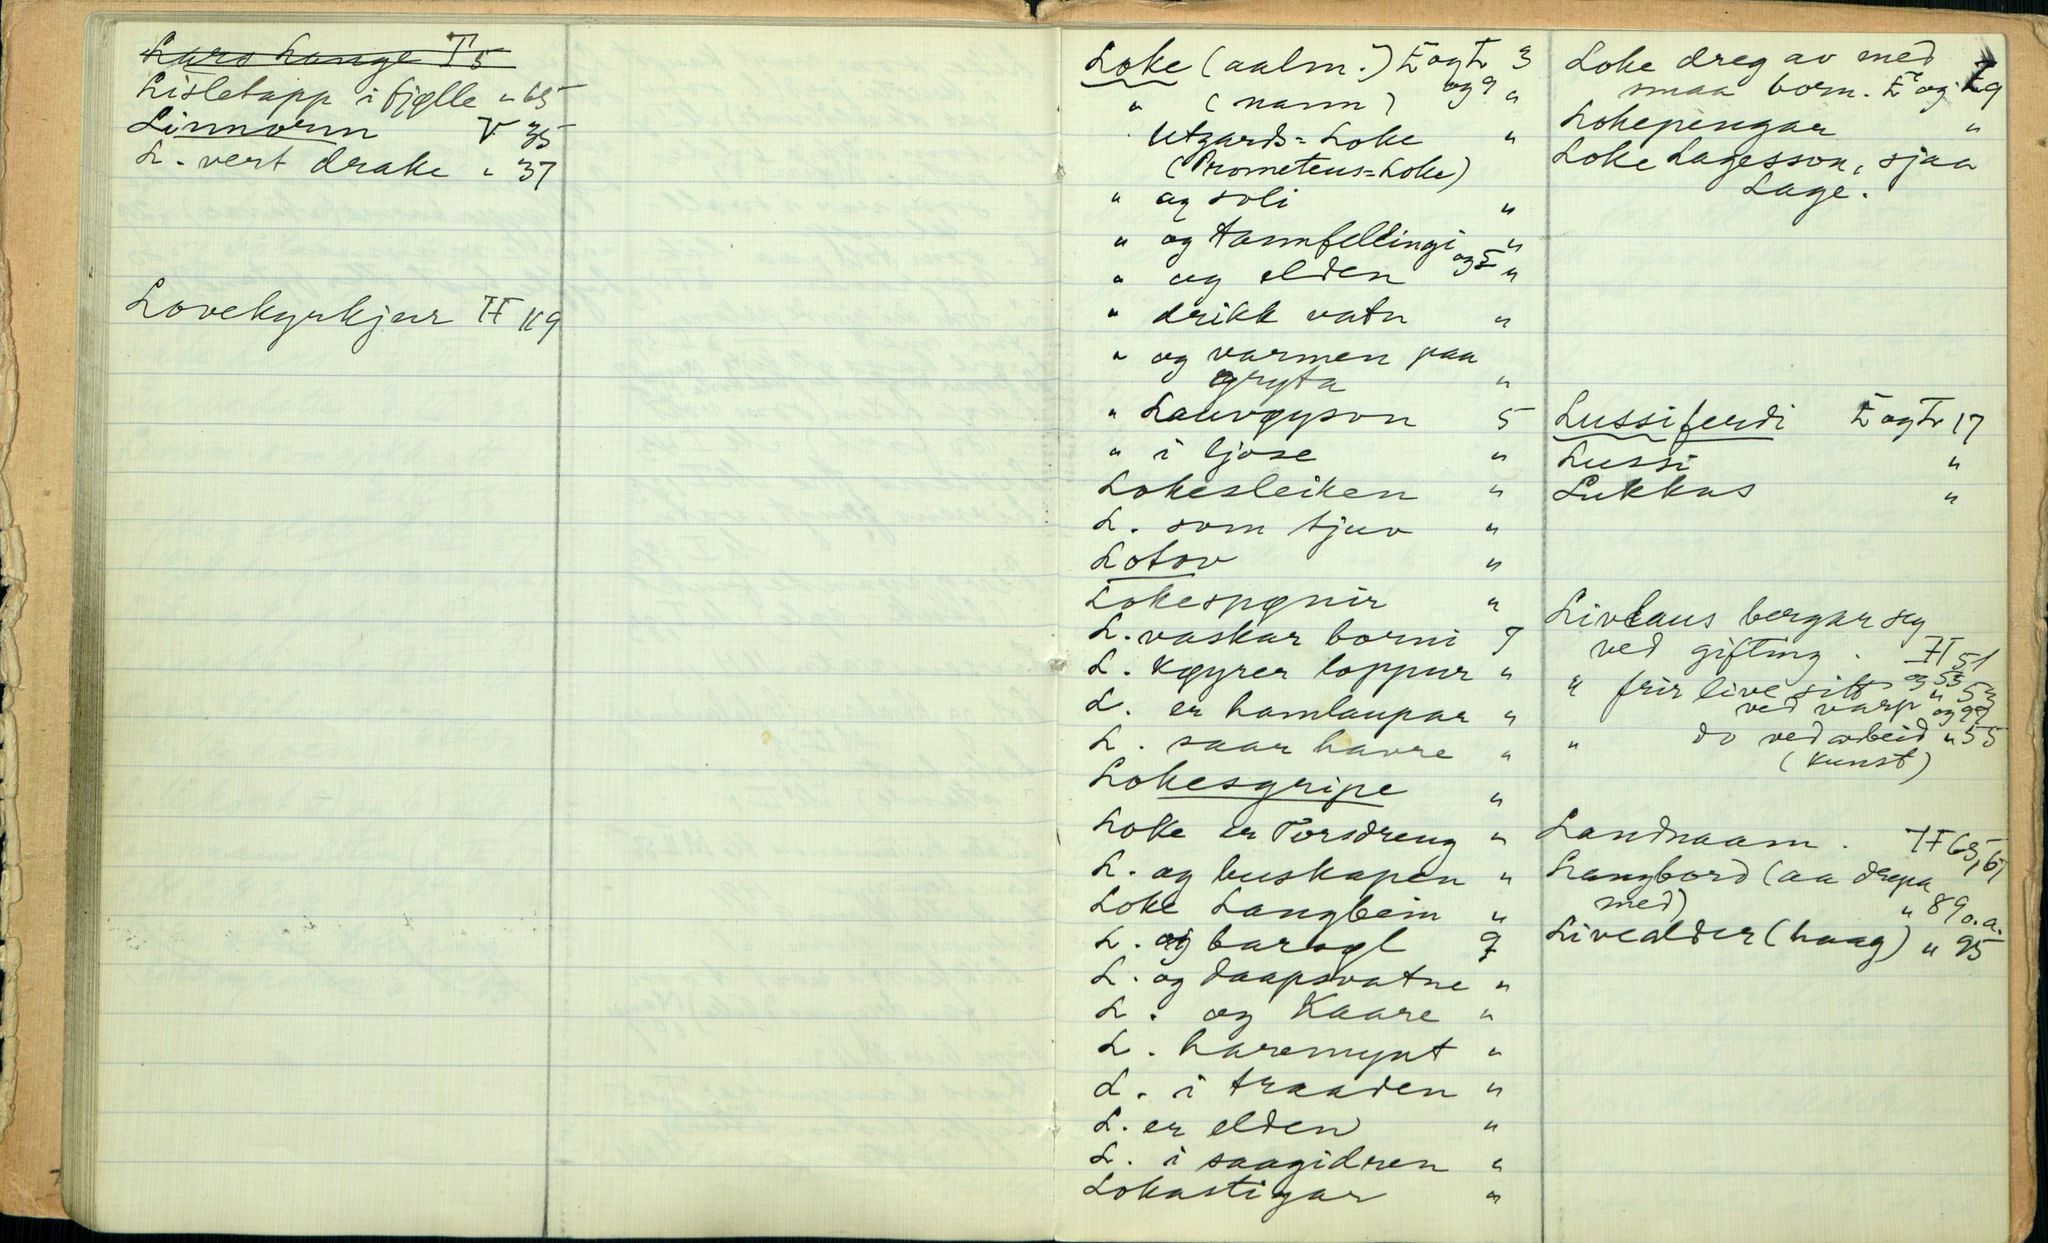 Lars Lange T 5
Lisletapp i fjelle " 65
Linnorm V 35
L. vert drake " 37
Lovekyrkjur II 119
Loke (aalm.) E og Tr 3
" (namn) og 9 "
Utgards=Loke "
(Prometeus=Loke)
" og soli "
" og tannfellingi "
" og elden og 5 "
" drikk vatn "
" og varmen paa
gryta "
" Lauvøyson 5
" i ljose "
Lokesleiken "
L. som tjuv "
Lotov "
Lokespønir "
L. vaskar borni 7
L. køyrer loppur "
L. er hamlaupar "
L. saar havre "
Lokesgripe "
Loke er Torsdreng "
L. og buskapen "
Loke Langbein "
L. og barogl 9
L. og daapsvatne "
L. og Kaare "
L. haremynt "
L. i traaden "
L. er elden "
L. i saagidren "
Lokastigar "
Loke dreg av med
smaa born. E og Tr 9
Lokepengar "
Loke Lagesson, sjaa
Lage.
Lussiferdi E og Tr 17
Lussi "
Lukkas "
Livlaus bergar seg
ved gifting. II 51
og 53
" frir live sitt " 53
ved varp og 97
" do ved arbeid " 55
(kunst)
Landnaam. II 65, 67
Langbord (aa drepa
med) " 89 o.a.
Livealder (haag) " 95